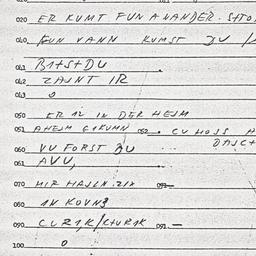 020 ER KUMT FUN ANANDER. STO
040 FUN VANN KUMST DU
041 BI+S+DU
042 ZAJNT IR
043 0
050 ER IZ IN DER HEJM
051 AHEJM GIKUMN 052 CU HOJS
060 VU FORST DU
061 AVU,
070 MIR HAJLN ZIX 071 —
080 IN KOVNE
090 CURIK/C+URIK 091. —
100 0